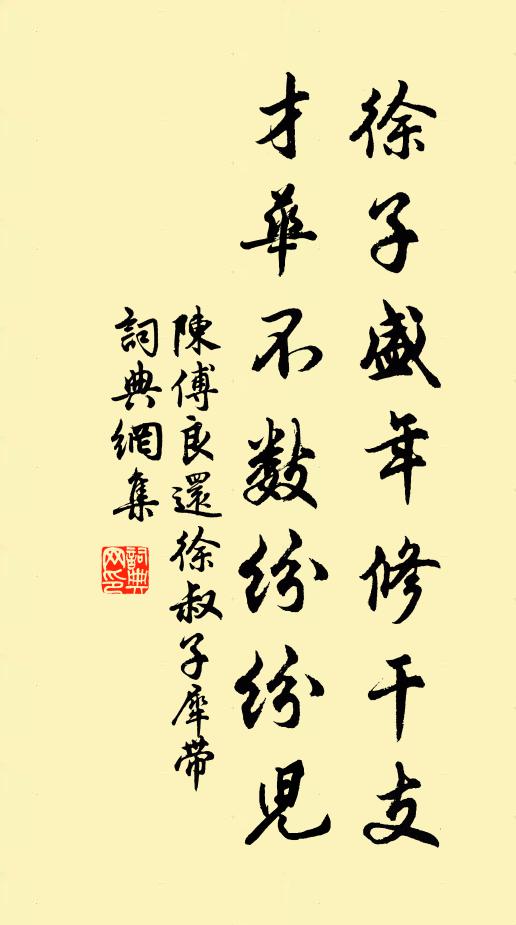 徐子盛年修干支
才華不数紛紛兒
陳傅良還徐叔子犀带
詞典網集
詞典网印